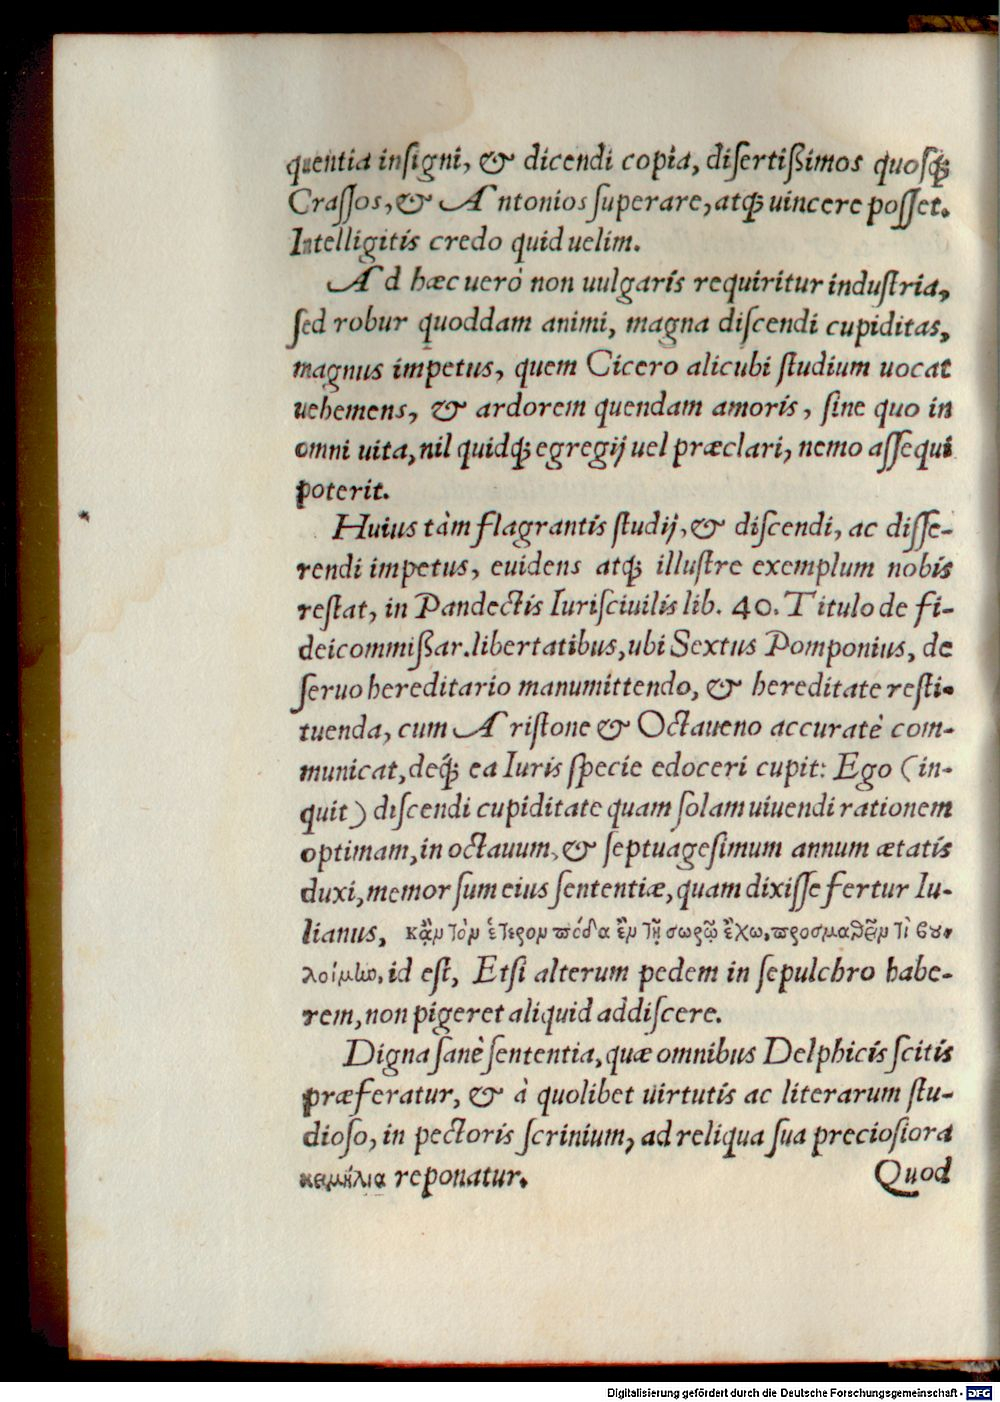 quentia insigni, & dicendi copia, disertißimos quosq;
Crassos, & Antonios superare, atq; uincere posset.
Intelligitis credo quid uelim.
Ad hæc uerò non uulgaris requiritur industria,
sed robur quoddam animi, magna discendi cupiditas,
magnus impetus, quem Cicero alicubi studium uocat
uehemens, & ardorem quendam amoris, sine quo in
omni uita, nil quidq; egregij uel præclari, nemo assequi
poterit.
Huius tàm flagrantis studij, & discendi, ac disse-
rendi impetus, euidens atq; illustre exemplum nobis
restat, in Pandectis Iurisciuilis lib. 40. Titulo de fi-
deicommißar. libertatibus, ubi Sextus Pomponius, de
seruo hereditario manumittendo, & hereditate resti-
tuenda, cum Aristone & Octaueno accuratè com-
municat, deq́; ea Iuris specie edoceri cupit: Ego (in-
quit) discendi cupiditate quam solam uiuendi rationem
optimam, in octauum, & septuagesimum annum ætatis
duxi, memor sum eius sententiæ, quam dixisse fertur Iu-
lianus, κᾂν τὸν ἕτερον πόδα ἐν τῇ σωρῷ ἔχω, προσμαθεῖν τὶ βου-
λοίμην, id est, Etsi alterum pedem in sepulchro habe-
rem, non pigeret aliquid addiscere.
Digna sanè sententia, quæ omnibus Delphicis scitis
præferatur, & à quolibet uirtutis ac literarum stu-
dioso, in pectoris scrinium, ad reliqua sua preciosiora
κειμήλια reponatur.
Quod
Digitalisierung gefördert durch die Deutsche Forschungsgemeinschaft - DFG